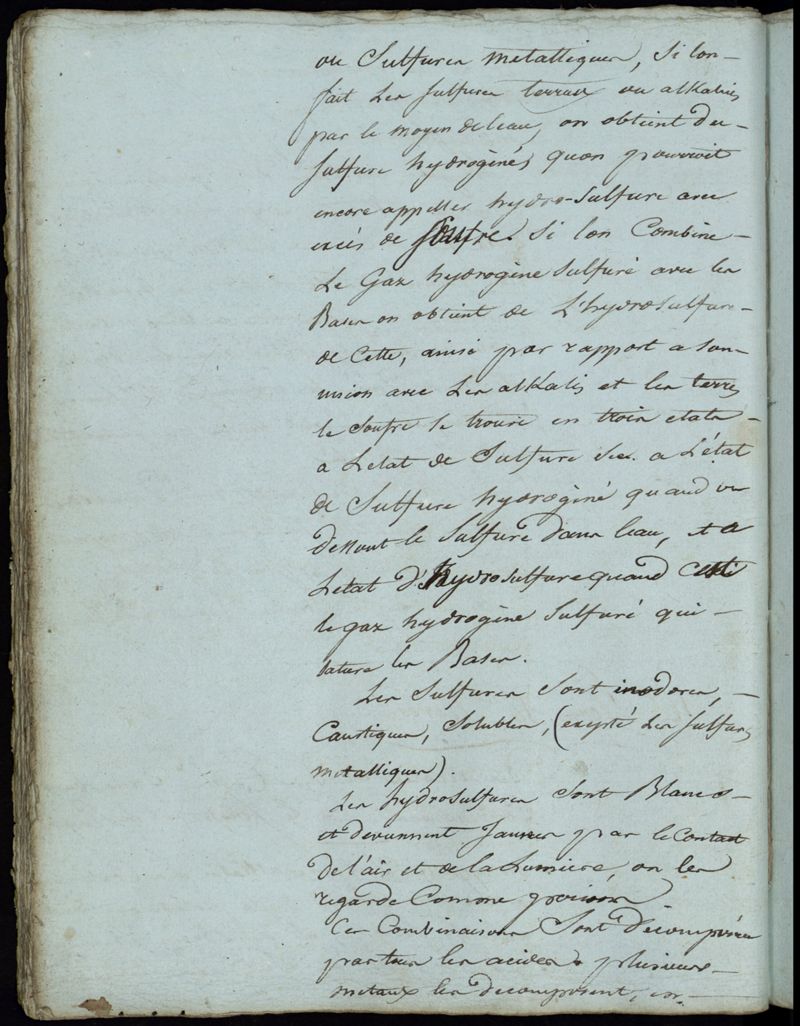 ou Sulfures metalliques, Si lon-
fait Les Sulfures terreux ou alkalins
par le moyen de leau, on obtient du-
Sulfure hydrogénés quon pourroit
encore appeller hydro-Sulfure avec
excés de Soufre. Si lon Combine-
Le Gaz hydrogène Sulfuré avec les
Bases on obtient de L'hydrosulfure-
de Cette, ainsi par rapport a Son-
union avec Les alkalis et les terres
le Soufre se trouve en trois etats-
a Letat de Sulfure Sec. a L'état
de Sulfure hydrogéné quand on
dessout le Sulfure dans leau, et a
Letat d'hydrosulfure quand C'est
le gaz hydrogène Sulfuré qui-
sature les Bases.
Les Sulfures Sont inodores,-
Caustiques, Solubles, (exepté Les Sulfures
metalliques).
Les hydrosulfures Sont Blancs-
et deviennent Jaunes par le Contact
De l'air et de la Lumiere, on les
regarde Comme poisons
Ces Combinaisons Sont Décomposées
par tous les acides plusieurs-
metaux les decomposent,